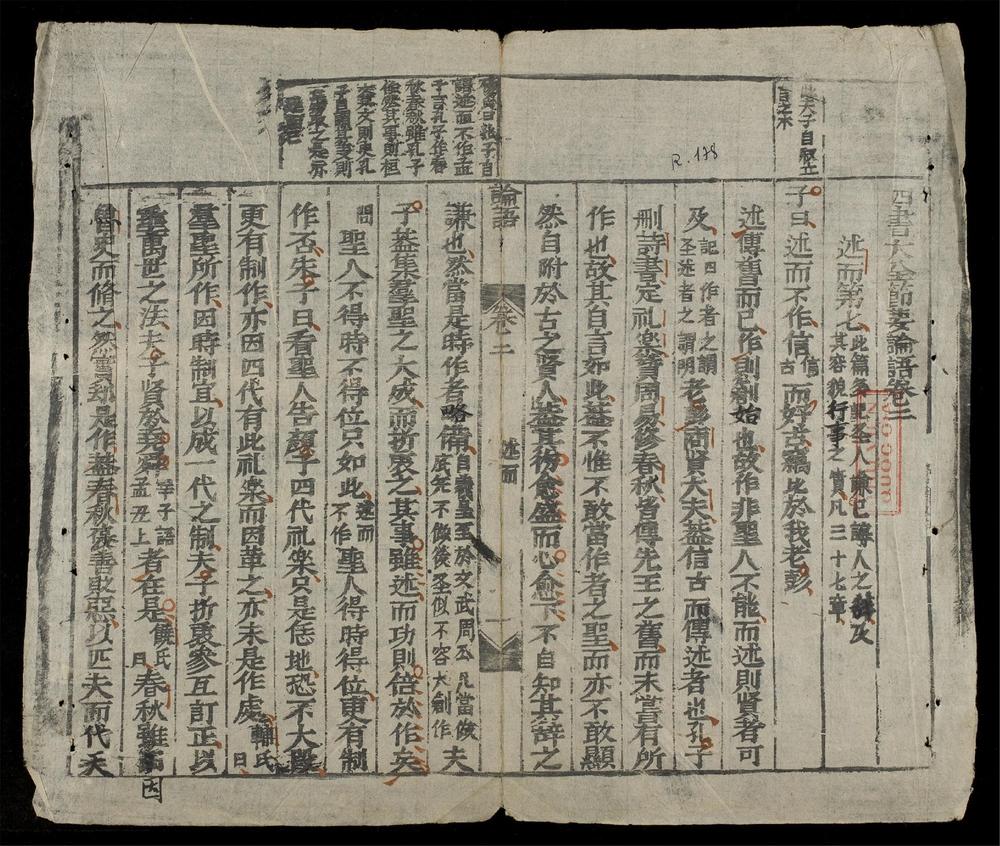 四書大全節要論語卷二
述而第七 此篇多記圣人謙己誨人之辭及
其容貌行事之實凡三十七章
子曰述而不作信 信古 而好古竊比於我老彭
述傳舊而已作則創始也故作非聖人不能而述則賢者可
及 記曰作者之謂圣述者之謂明 老彭商賢大夫蓋信古而傳述者也孔子
刪詩書定礼楽贊周易修春秋皆傳先王之舊而未嘗有所
作也故其自言如此蓋不惟不敢當作者之聖而亦不敢顯
然自附於古之賢人蓋其德愈盛而心愈下不自知其辞之
論語 卷二 述而 一
謙也然當是時作者略備 自羲皇至於文武周公凡當做
底年不做後圣似不容大創作 夫
子蓋集羣聖之大成而折衷之其事雖述而功則倍於作矣
問聖人不得時不得位只如此 述而不作 聖人得時得位更有制
作否朱子曰看聖人告顔子四代礼楽只是恁地恐不大段
更有制作亦因四代有此礼楽而因革之亦未是作處 輔氏曰
羣聖所作因時制宜以成一代之制夫子折衷參互訂正以
垂萬世之法夫子賢於堯舜 宰子語孟丑上 者在是 饒氏曰 春秋雖因
魯史而修之然實却是作蓋春秋褒善貶惡以匹夫而代天
此夫子自叙立
言之本
語述而不作孟
子言孔子作春
秋春秋雖孔子
作然其事則桓
文其文則史孔
子自謂其義則
丘竊取之是亦
述而已
R.178